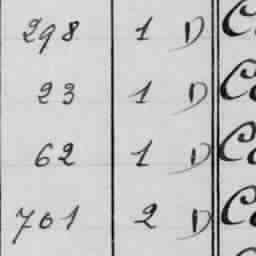 298 1 D C
23 1 D C
62 1 D C
701 2 D C